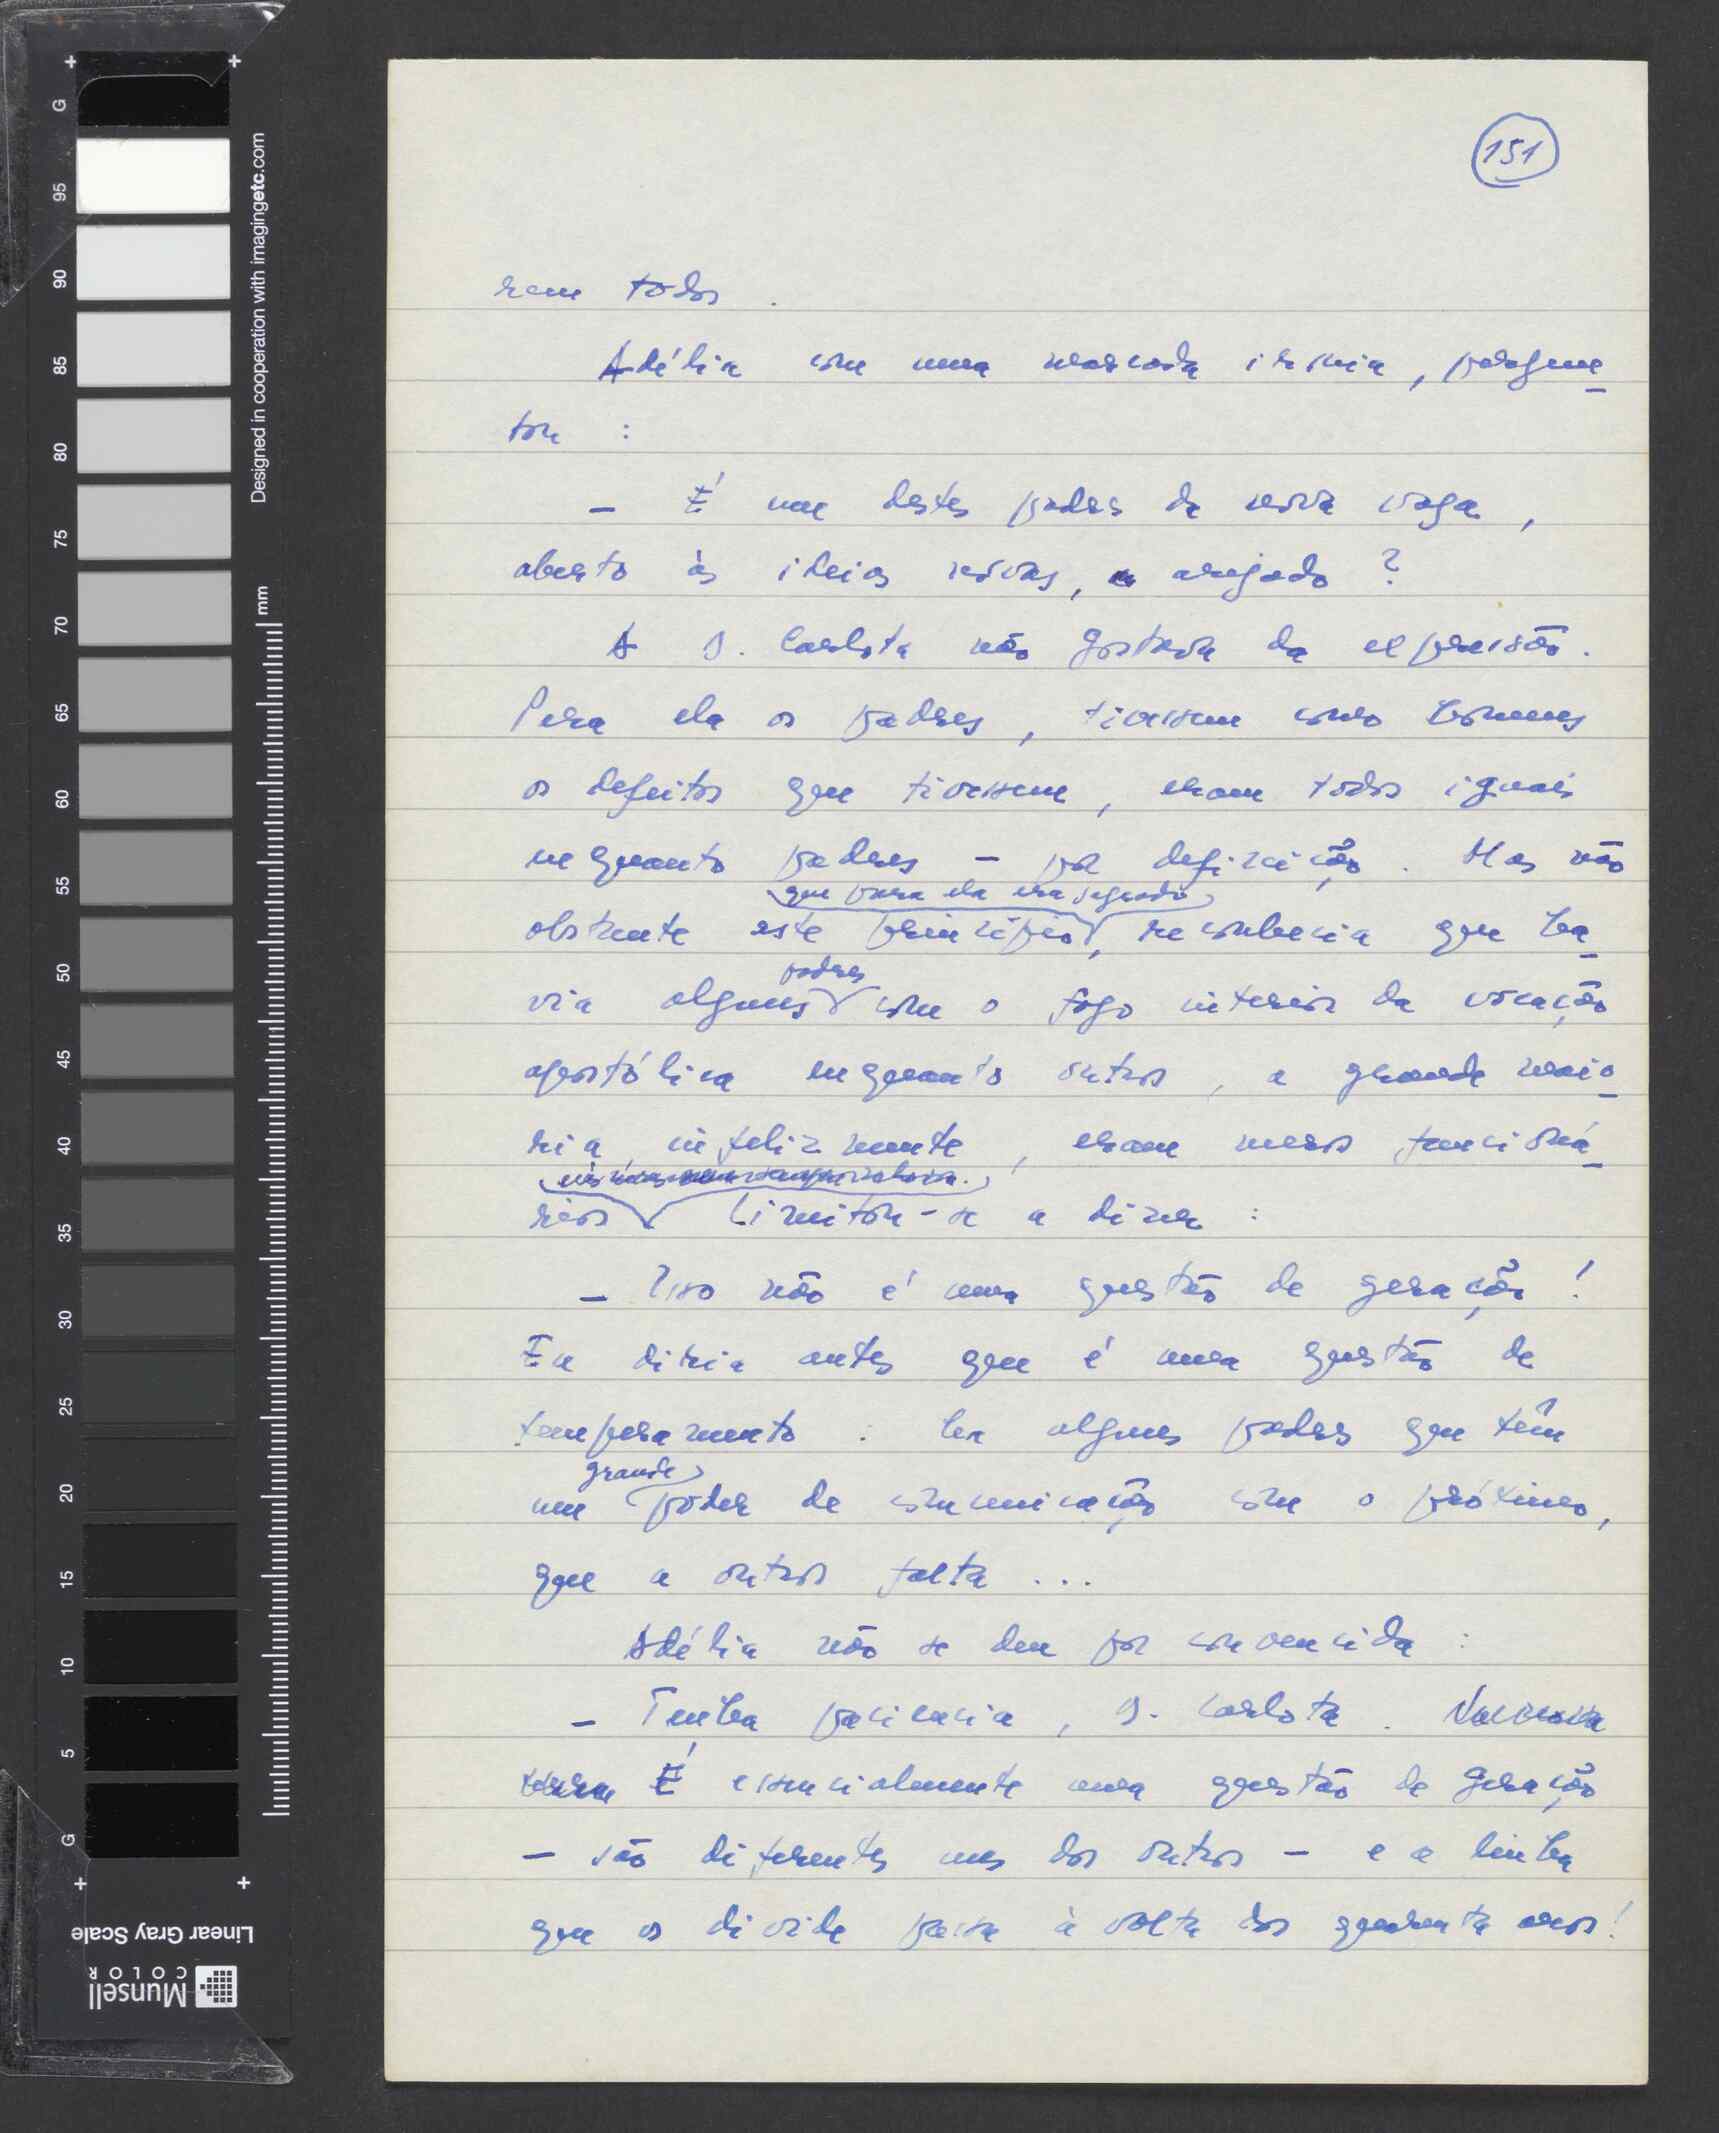 151
rem todos.
Adélia com uma marcada ironia, pergun-
tou :
– É um destes padres da nova vaga,
aberto às ideias novas, arejado ?
A D. Carlota não gostava da expressão.
Para ela os padres, tivessem como homens
os defeitos que tivessem, eram todos iguais
enquanto padres – por definição. Mas não
que para ela era sagrado
obstante este princípio, reconhecia que ha-
padres
via alguns com o fogo interior da vocação
apostólica enquanto outros, a grande maio-
ria infelizmente, eram meros funcioná-
rios Limitou-se a dizer :
– Isso não é uma questão de geração !
Eu diria antes que é uma questão de
temperamento : ha alguns padres que têm
grande
um poder de comunicação com o próximo,
que a outros falta ...
Adélia não se deu por convencida :
– Tenha paciencia, D. Carlota.
É essencialmente uma questão de geração
– são diferentes uns dos outros – e a linha
que os divide passa à volta dos quarenta anos!
G
95
90
85
80
75
70
65
60
55
50
45
40
35
30
25
20
15
10
5
G
Designed in cooperation with imagingetc.com
mm
Linear Gray Scale
Munsell
COLOR